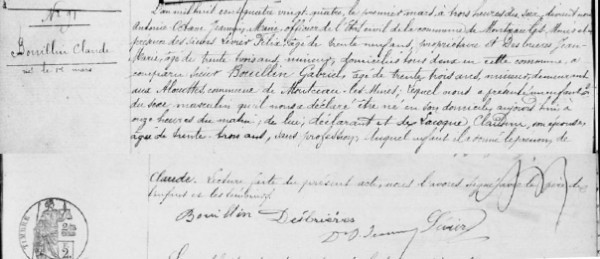 N° 91
Bouillin Claude
né le 1er mars
L'an mil huit cent quatre vingt quatre, le premier mars, à trois heures du soir, devant nous
Antoine Octave Jeannin, Maire, officier de l'état civil de la commune de Montceau les Mines et en
présence des sieurs Livier Félix, âgé de trente neuf ans, propriétaire et Desbrières Jean
Marie, âgé de trente trois ans, mineur, domiciliés tous deux en cette commune, a
comparu le sieur Bouillin Gabriel, âgé de trente trois ans, mineur, demeurant
aux Alouettes, commune de Montceau-les-Mines; lequel nous a présenté un enfant
du sexe masculin qu'il nous a déclaré être né en son domicile, aujourd'hui à
onze heures du matin, de lui, déclarant et de Lacogne Claudine, son épouse,
âgée de trente-trois ans, sans profession, lequel enfant il a donné le prénom de
Claude. Lecture faite du présent acte, nous l'avons signé avec le père de
l'enfant et les témoins.
Bouillin Desbrières
Livier
TIMBRE